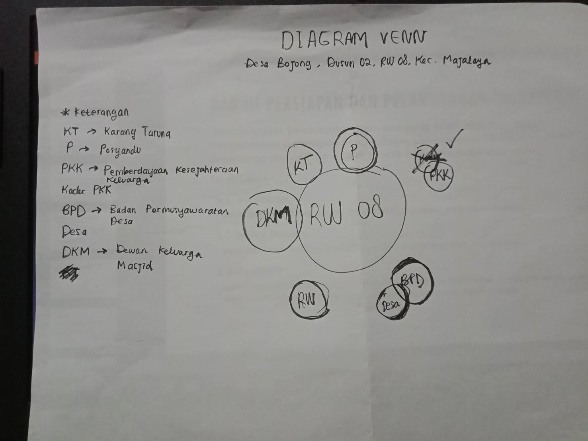 DIAGRAM VENN
Desa Bojong, Dusun 02, RW 08, Kec. Majalaya
* Keterangan
KT → Karang Taruna
P → Posyandu
PKK → Pemberdayaan Kesejahteraan
Keluarga
Kader PKK
BPD → Badan Permusyawaratan
Desa
Desa
DKM → Dewan Keluarga
Masjid
KT
P
PKK
DKM
RW 08
RW
Desa
BPD